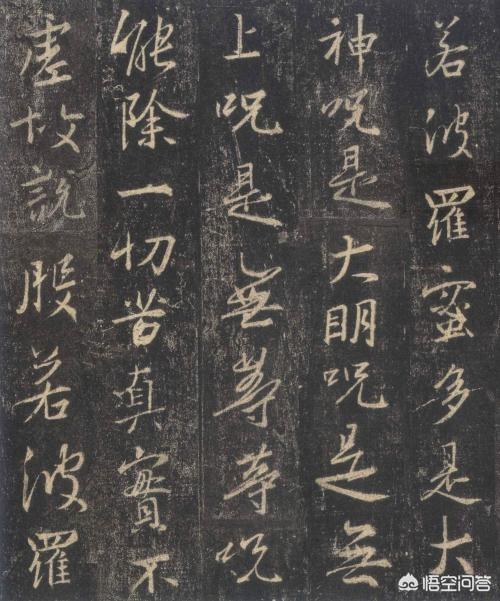 若波羅蜜多是大
神呪是大明呪是無
上呪是無等等呪
能除一切苦真實不
虛故說般若波羅
悟空问答